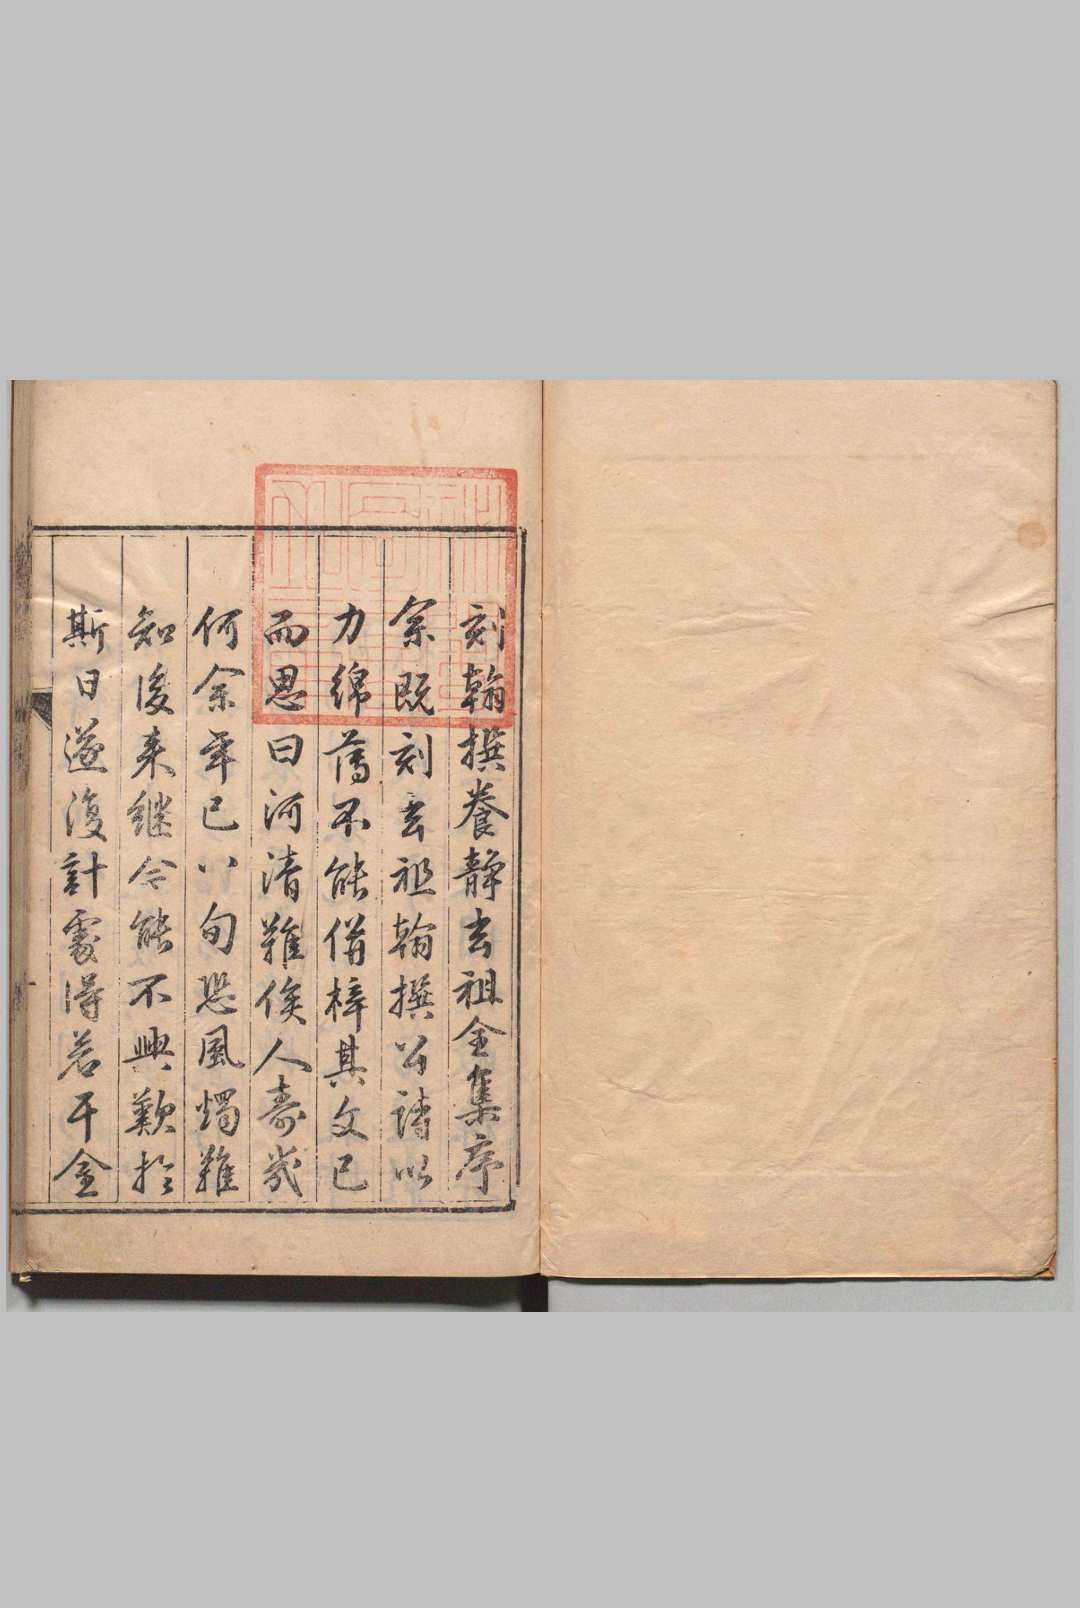 刻翰撰養靜玄祖全集序
余既刻玄祖翰撰公詩以
力綿薄不能併梓其文已
而思曰河清難俟人壽幾
何余年已八旬恐風燭難
知後来继令能不興歎於
斯日遂復計處得若干金